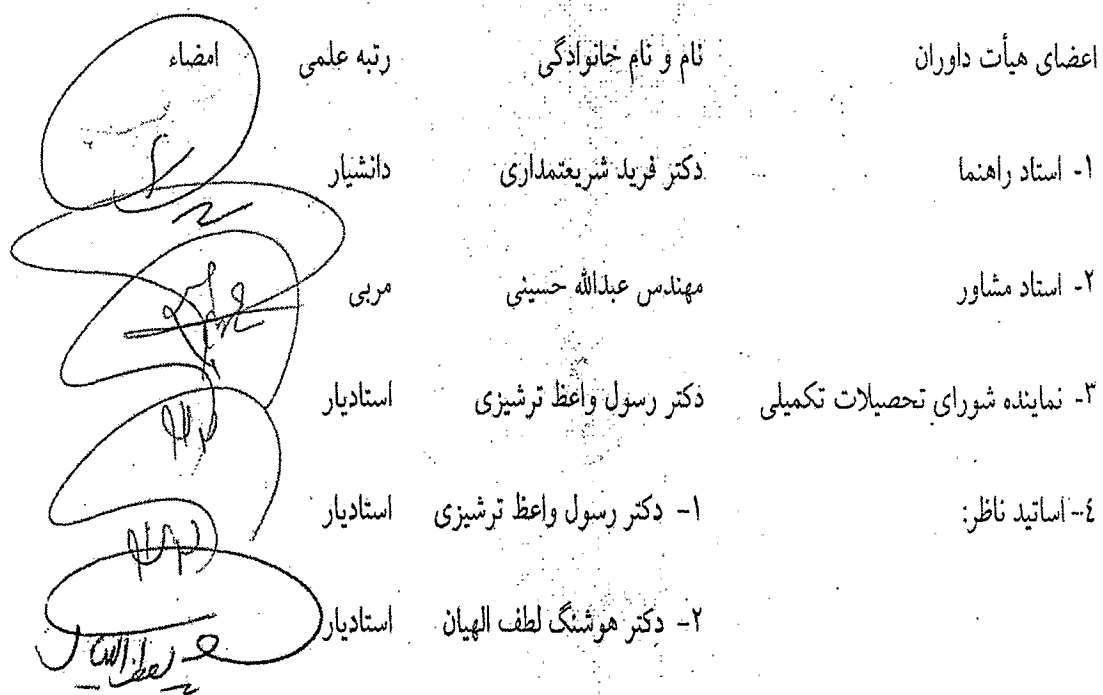 اعضای هیأت داوران نام و نام خانوادگی رتبه علمی امضاء
۱- استاد راهنما دکتر فرید شریعتمداری دانشیار
۲- استاد مشاور مهندس عبدالله حسینی مربی
۳- نماینده شورای تحصیلات تکمیلی دکتر رسول واعظ ترشیزی استادیار
٤- اساتید ناظر: ۱- دکتر رسول واعظ ترشیزی استادیار
۲- دکتر هوشنگ لطف الهیان استادیار